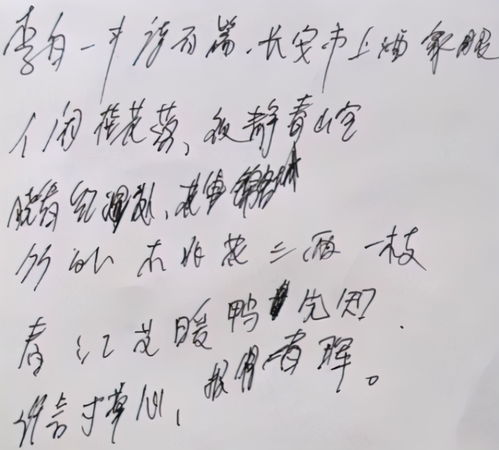 李白一斗诗百篇.长安市上酒家眠
人闲桂花落、夜静春山空
晓看红湿处,花重锦官城
竹外桃花三两枝
春江花暖鸭先知?
谁言寸草心,报得春晖。